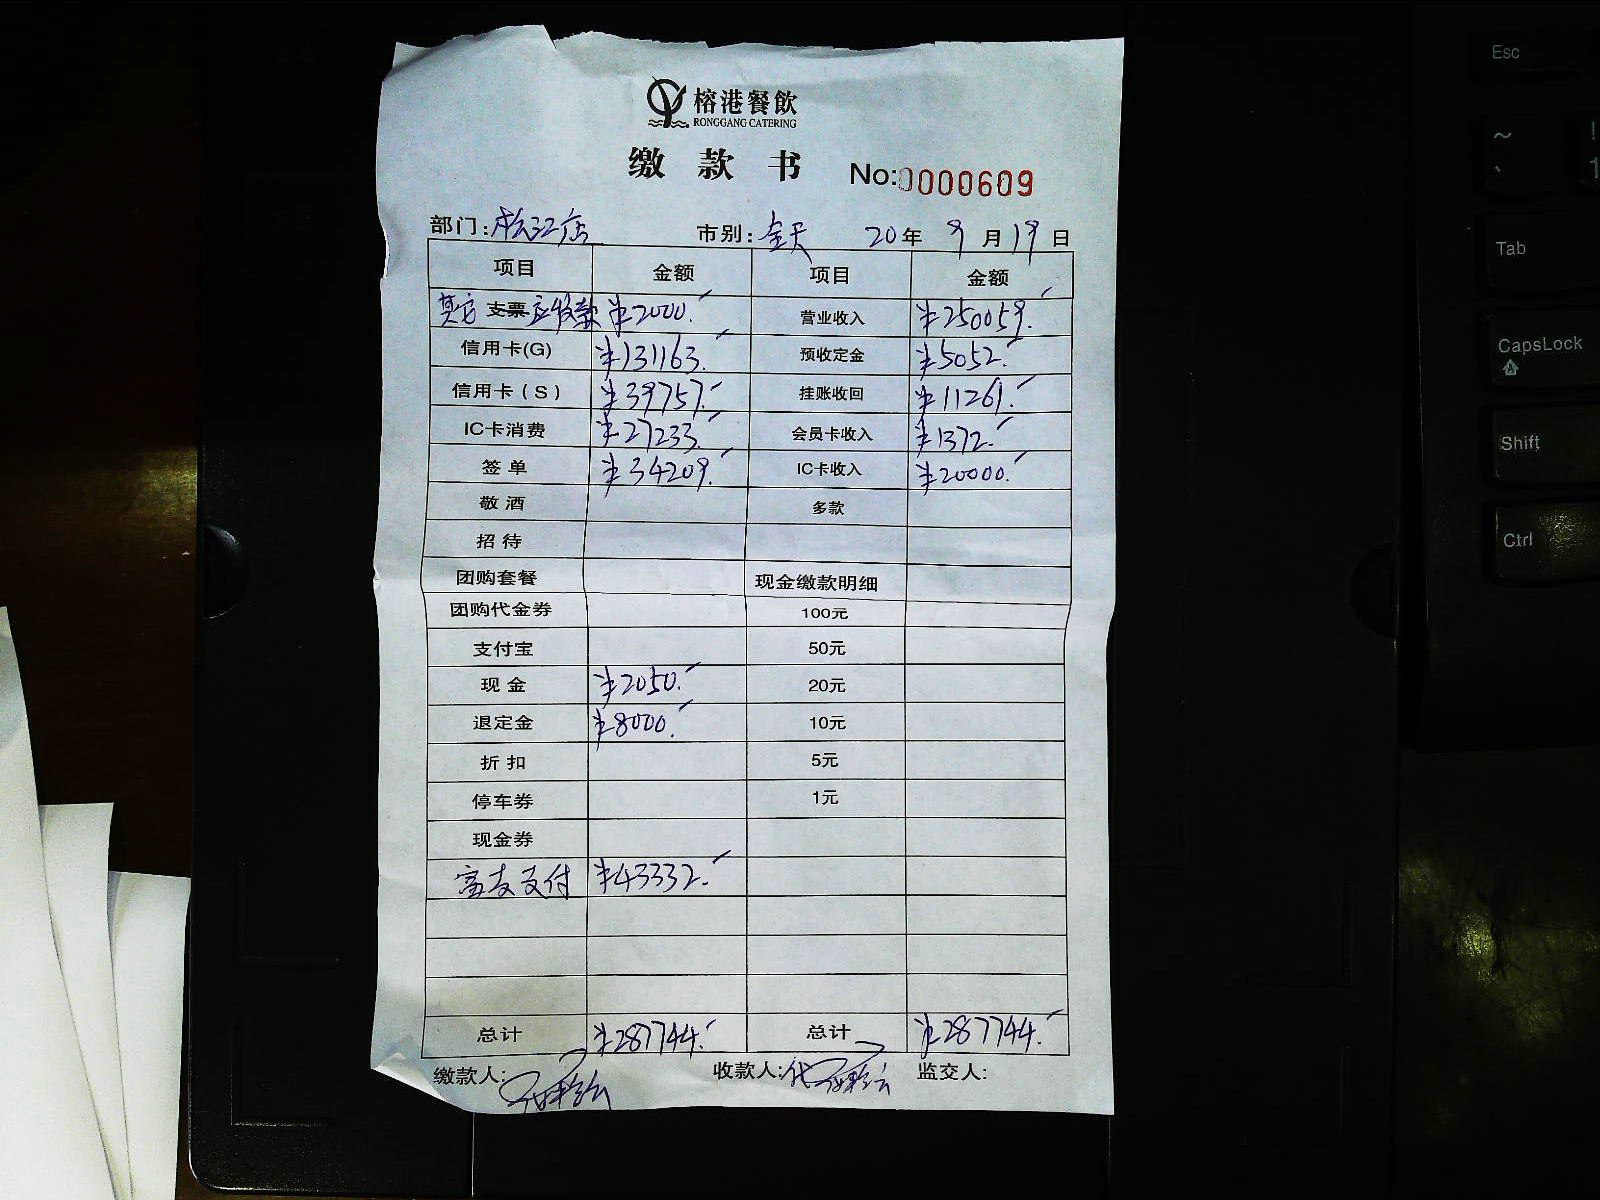 榕港餐飲
RONGGANG CATERING
缴款书 No:0000609
部门:松江店 市别:全天 20年9月19日
项目 金额 项目 金额
其它 支票 应收款 ¥2000. 营业收入 ¥250059.
信用卡(G) ¥131163. 预收定金 ¥5052.
信用卡(S) ¥39757. 挂账收回 ¥11261.
IC卡消费 ¥27233. 会员卡收入 ¥1372.
签单 ¥34209. IC卡收入 ¥20000.
敬酒 多款
招待
团购套餐 现金缴款明细
团购代金券 100元
支付宝 50元
现金 ¥2050. 20元
退定金 ¥8000. 10元
折扣 5元
停车券 1元
现金券
富友支付 ¥43332.
总计 ¥287744. 总计 ¥287744.
缴款人: 收款人:代 监交人:
Esc
~
`
!
1
Tab
CapsLock
Shift
Ctrl